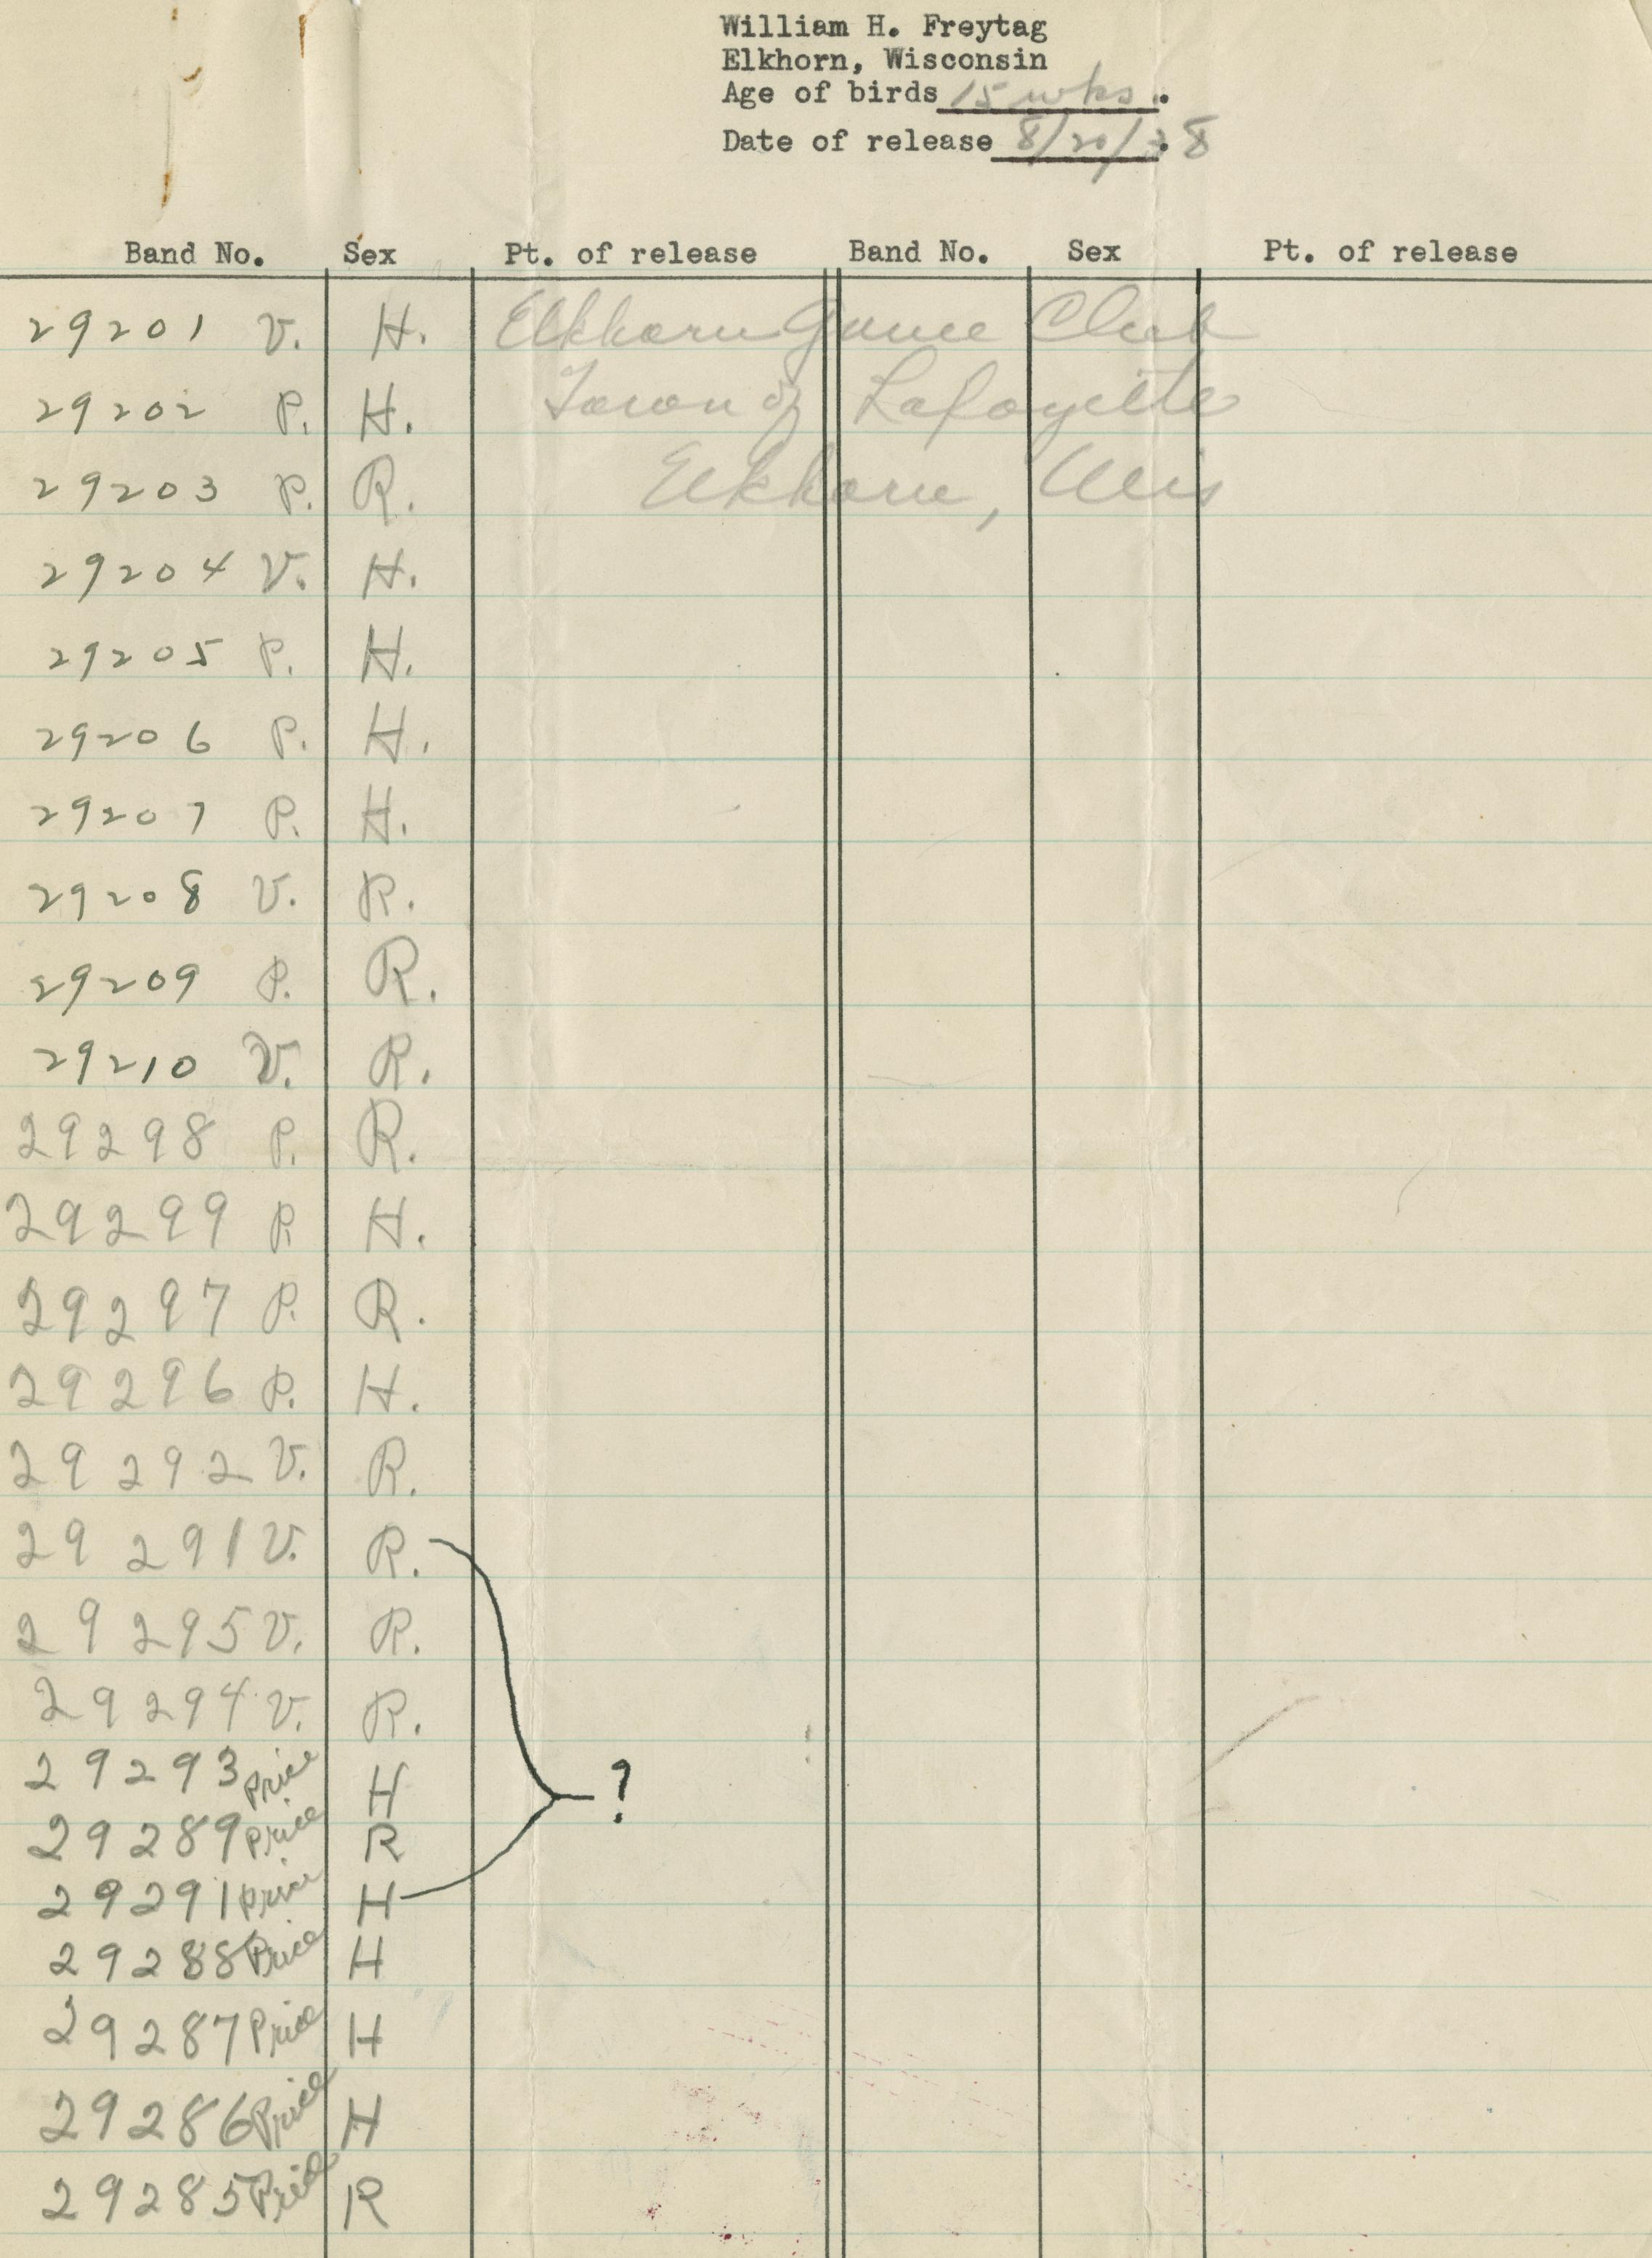 William H. Freytag
Elkhorn, Wisconsin
Age of birds 15 wks.
Date of release 8/20/38
Band No. Sex Pt. of release Band No. Sex Pt. of release
29201 V. H. Elkhorn Game Club
29202 P. H. Town of Lafayette
29203 P. R. Elkhorn, Wis
29204 V. H.
29205 P. H.
29206 P. H.
29207 P. H.
29208 V. R.
29209 P. R.
29210 V. R.
29298 P. R.
29299 P. H.
29297 P. R.
29296 P. H.
29292 V. R.
29291 V. R.
29295 V. R.
29294 V. R.
29293 Price H ?
29289 Price R
29291 Price H
29288 Price H
29287 Price H
29286 Price H
29285 Price R